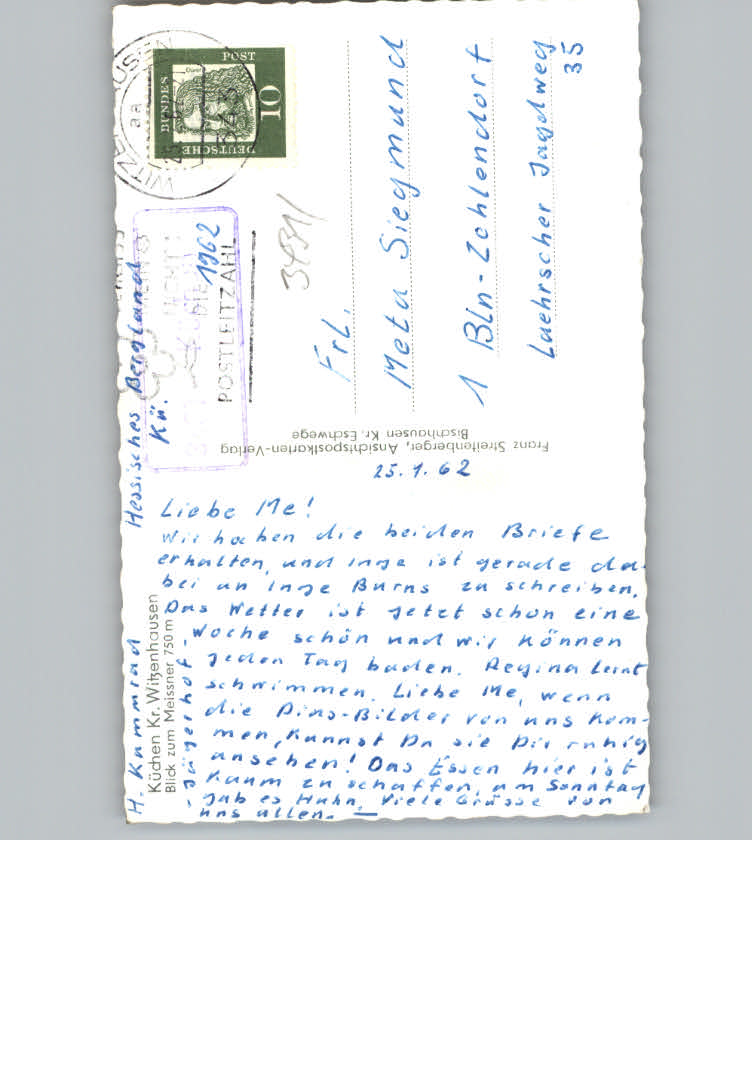 25.7.62
Liebe Me!
Wir haben die beiden Briefe
erhalten, und Inge ist gerade da-
bei an Inge Burns zu schreiben.
Das Wetter ist jetzt schon eine
Woche schön und wir können
jeden Tag baden. Regina lernt
schwimmen. Liebe Me, wenn
die Dias-Bilder von uns kom-
men, kannst Du sie Dir ruhig
ansehen! Das Essen hier ist
kaum zu schaffen, am Sonntag
gab es Huhn. Viele Grüsse von
uns allen. —
H. Kammrad
Hessisches Bergland
Kü.
-Jägerhof-
Küchen Kr. Witzenhausen
Blick zum Meissner 750 m
Franz Streitenberger, Ansichtspostkarten-Verlag
Bischhausen Kr. Eschwege
Frl.
Meta Siegmund
1 Bln-Zehlendorf
Laehrscher Jagdweg
35
1962
POSTLEITZAHL
DEUTSCHE
BUNDES
POST
10
WITZENHAUSEN
aa